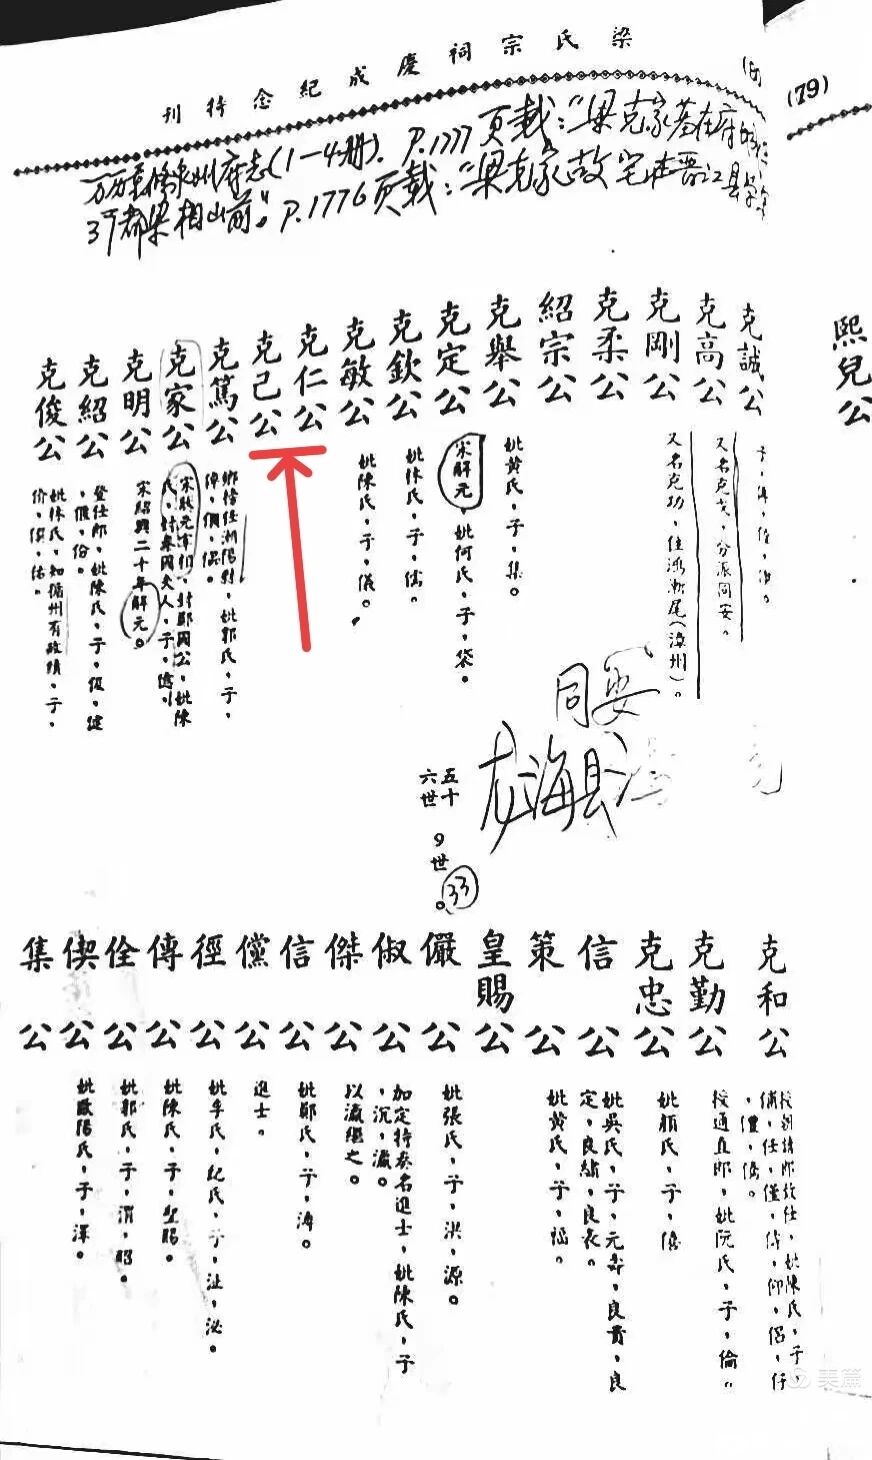 梁氏宗祠慶成紀念特刊
(79)
万历重修泉州府志(1—4册). P.1777页載:“梁克家墓在府
37都梁相山前”。P.1776页載:“梁克家故宅在晋江县学
熙兒公
克誠公
克高公
又名克戈,分派同安。
克剛公
又名克功,住漸尾(漳州)。
克柔公
紹宗公
克舉公
妣黃氏,子,集。
克定公
宋解元,妣何氏,子,袋。
克欽公
妣林氏,子,儒。
克敏公
妣陳氏,子,儀。
克仁公
克己公
克篤公
鄉信任浙陽尉,妣郭氏,子,
偉,價,傑。
克家公
宋狀元宰相,封鄭國公,妣陳
氏,封秦國夫人,子,億。
克明公
宋紹興二十年解元。
克紹公
登仕郎,妣陳氏,子,伋,健
,儼,份。
克俊公
妣林氏,知循州有政績,子,
价,供,佑。
同安
龙海县
五十
六世
9世。
33
克和公
妣陳氏,子,
俌,任,僅,偉,仰,侶,仔
,僼,僑。
克勤公
授通直郎,妣阮氏,子,倫。
克忠公
妣顏氏,子,僖
信公
妣吳氏,子,元壽,良貴,良
定,良績,良表。
策公
妣黃氏,子,福。
皇賜公
儼公
妣張氏,子,洪,源。
俶公
加定特奏名進士,妣陳氏,子
,沉,瀛。
傑公
以瀛繼之。
信公
妣鄭氏,子,濤。
儻公
進士。
徑公
妣李氏,紀氏,子,沚,泌。
傳公
妣陳氏,子,聖賜。
佺公
妣郭氏,子,渭,昭。
偰公
妣歐陽氏,子,澤。
集公
美篇